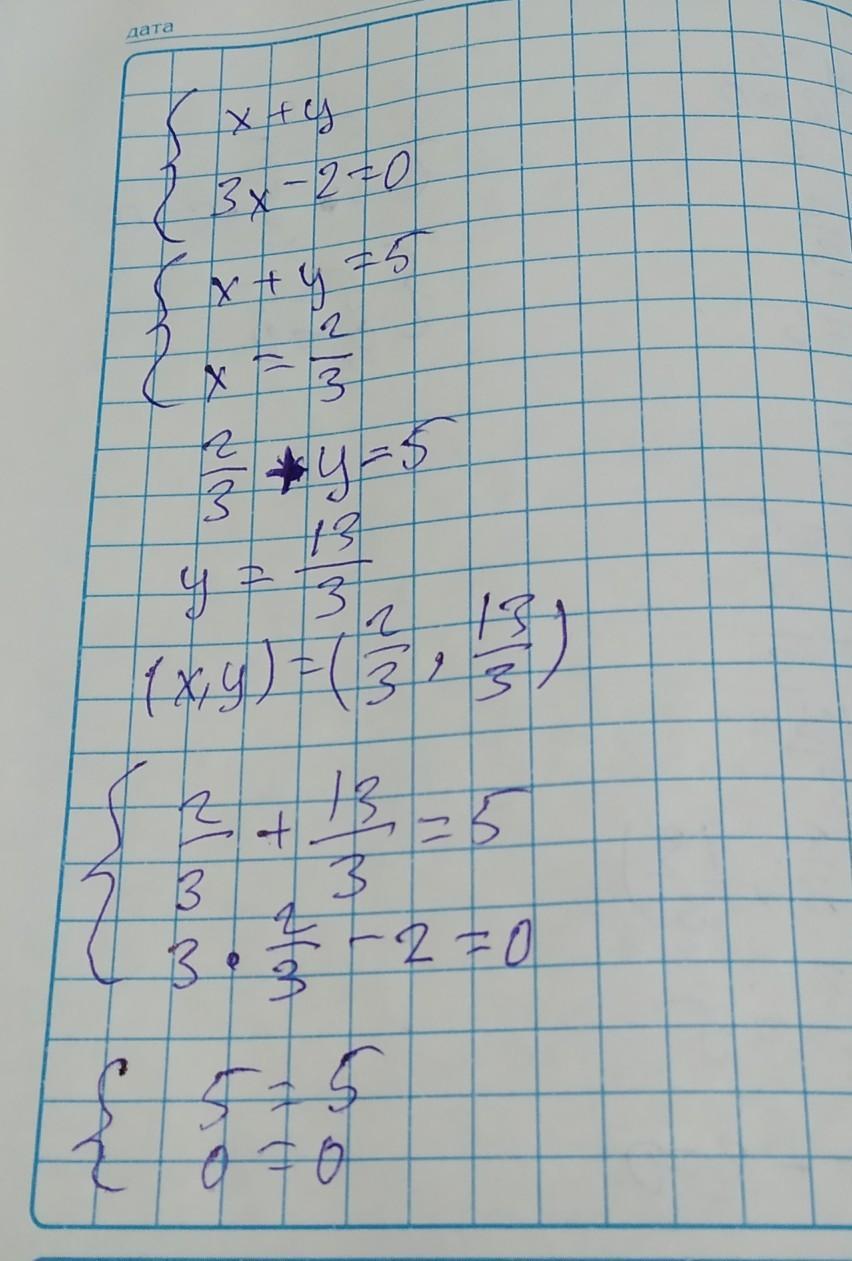 дата
{ x + y
3x - 2 = 0
{ x + y = 5
x = 2/3
2/3 + y = 5
y = 13/3
(x, y) = (2/3, 13/3)
{ 2/3 + 13/3 = 5
3 · 2/3 - 2 = 0
{ 5 = 5
0 = 0